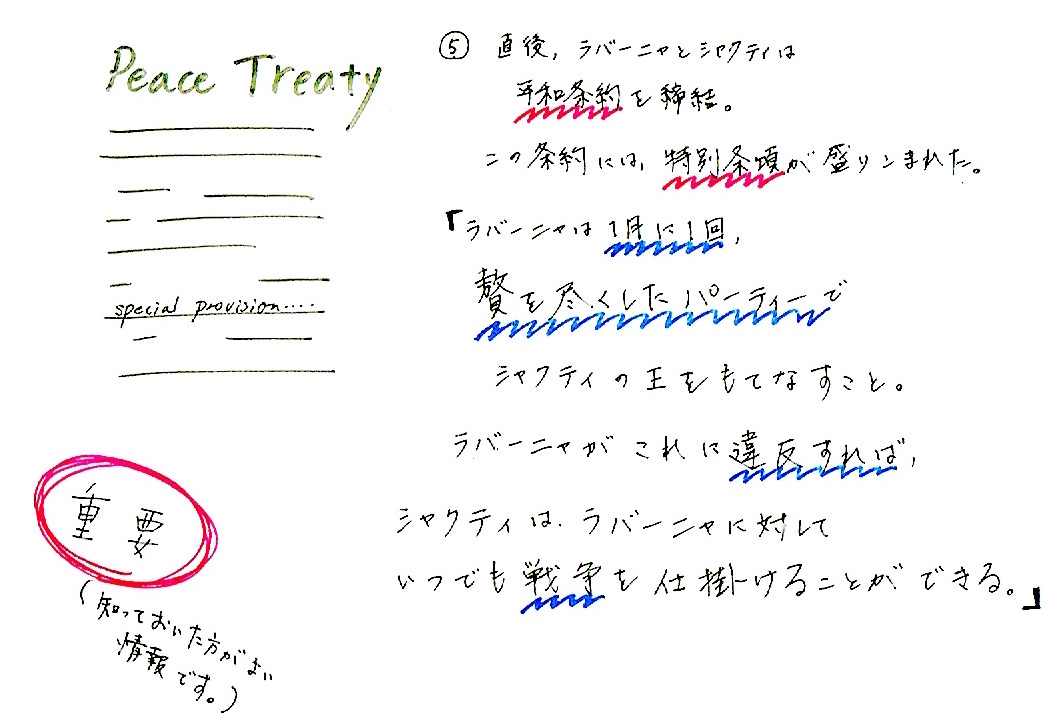 Peace Treaty
special provision....
重要
(知っておいた方がよい
情報です。)
⑤ 直後, ラバーニャとシャクティは
平和条約を締結。
この条約には, 特別条項が盛りこまれた。
「ラバーニャは1月に1回,
贅を尽くしたパーティーで
シャクティの王をもてなすこと。
ラバーニャがこれに違反すれば,
シャクティは, ラバーニャに対して
いつでも戦争を仕掛けることができる。」